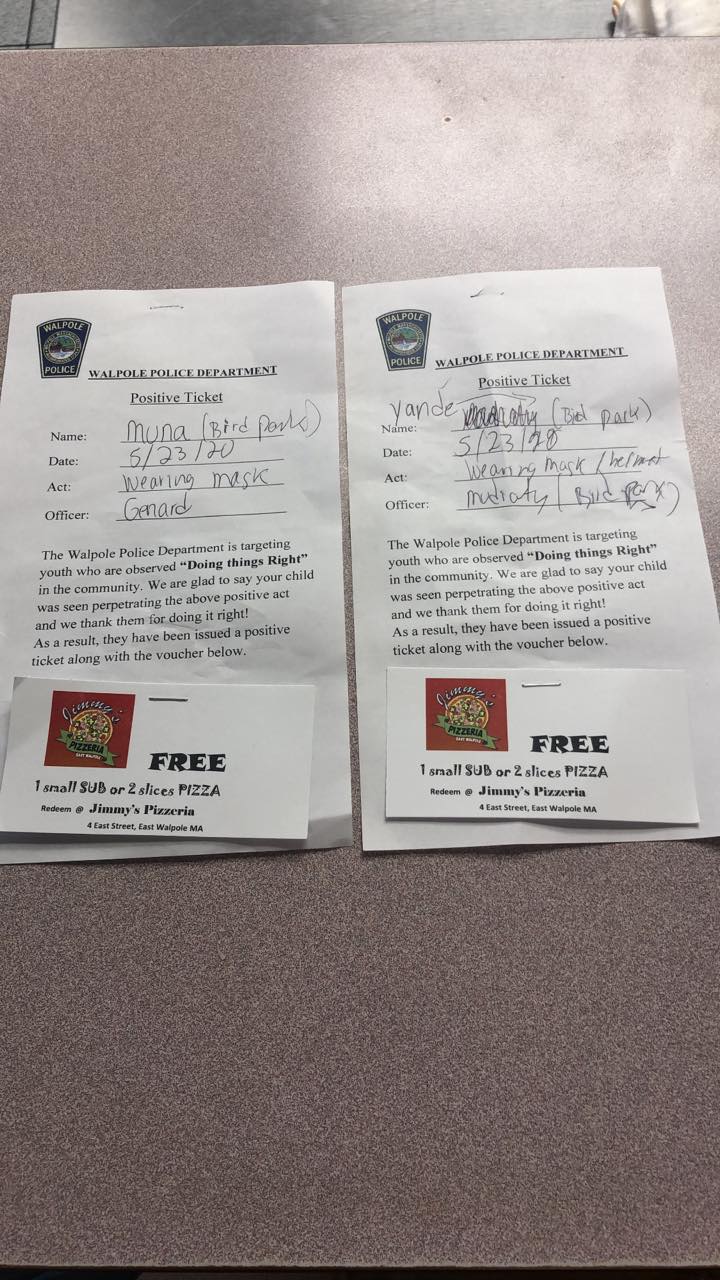 WALPOLE
POLICE
WALPOLE POLICE DEPARTMENT
Positive Ticket
Name: Muna (Bird Park)
Date: 5/23/20
Act: Wearing mask
Officer: Genard
The Walpole Police Department is targeting
youth who are observed “Doing things Right”
in the community. We are glad to say your child
was seen perpetrating the above positive act
and we thank them for doing it right!
As a result, they have been issued a positive
ticket along with the voucher below.
Jimmy's
PIZZERIA
EAST WALPOLE
FREE
1 small SUB or 2 slices PIZZA
Redeem @ Jimmy's Pizzeria
4 East Street, East Walpole MA
WALPOLE
POLICE
WALPOLE POLICE DEPARTMENT
Positive Ticket
Name: Yandé (Bird Park)
Date: 5/23/20
Act: Wearing mask / helmet
Officer: (Bird Park)
The Walpole Police Department is targeting
youth who are observed “Doing things Right”
in the community. We are glad to say your child
was seen perpetrating the above positive act
and we thank them for doing it right!
As a result, they have been issued a positive
ticket along with the voucher below.
Jimmy's
PIZZERIA
EAST WALPOLE
FREE
1 small SUB or 2 slices PIZZA
Redeem @ Jimmy's Pizzeria
4 East Street, East Walpole MA